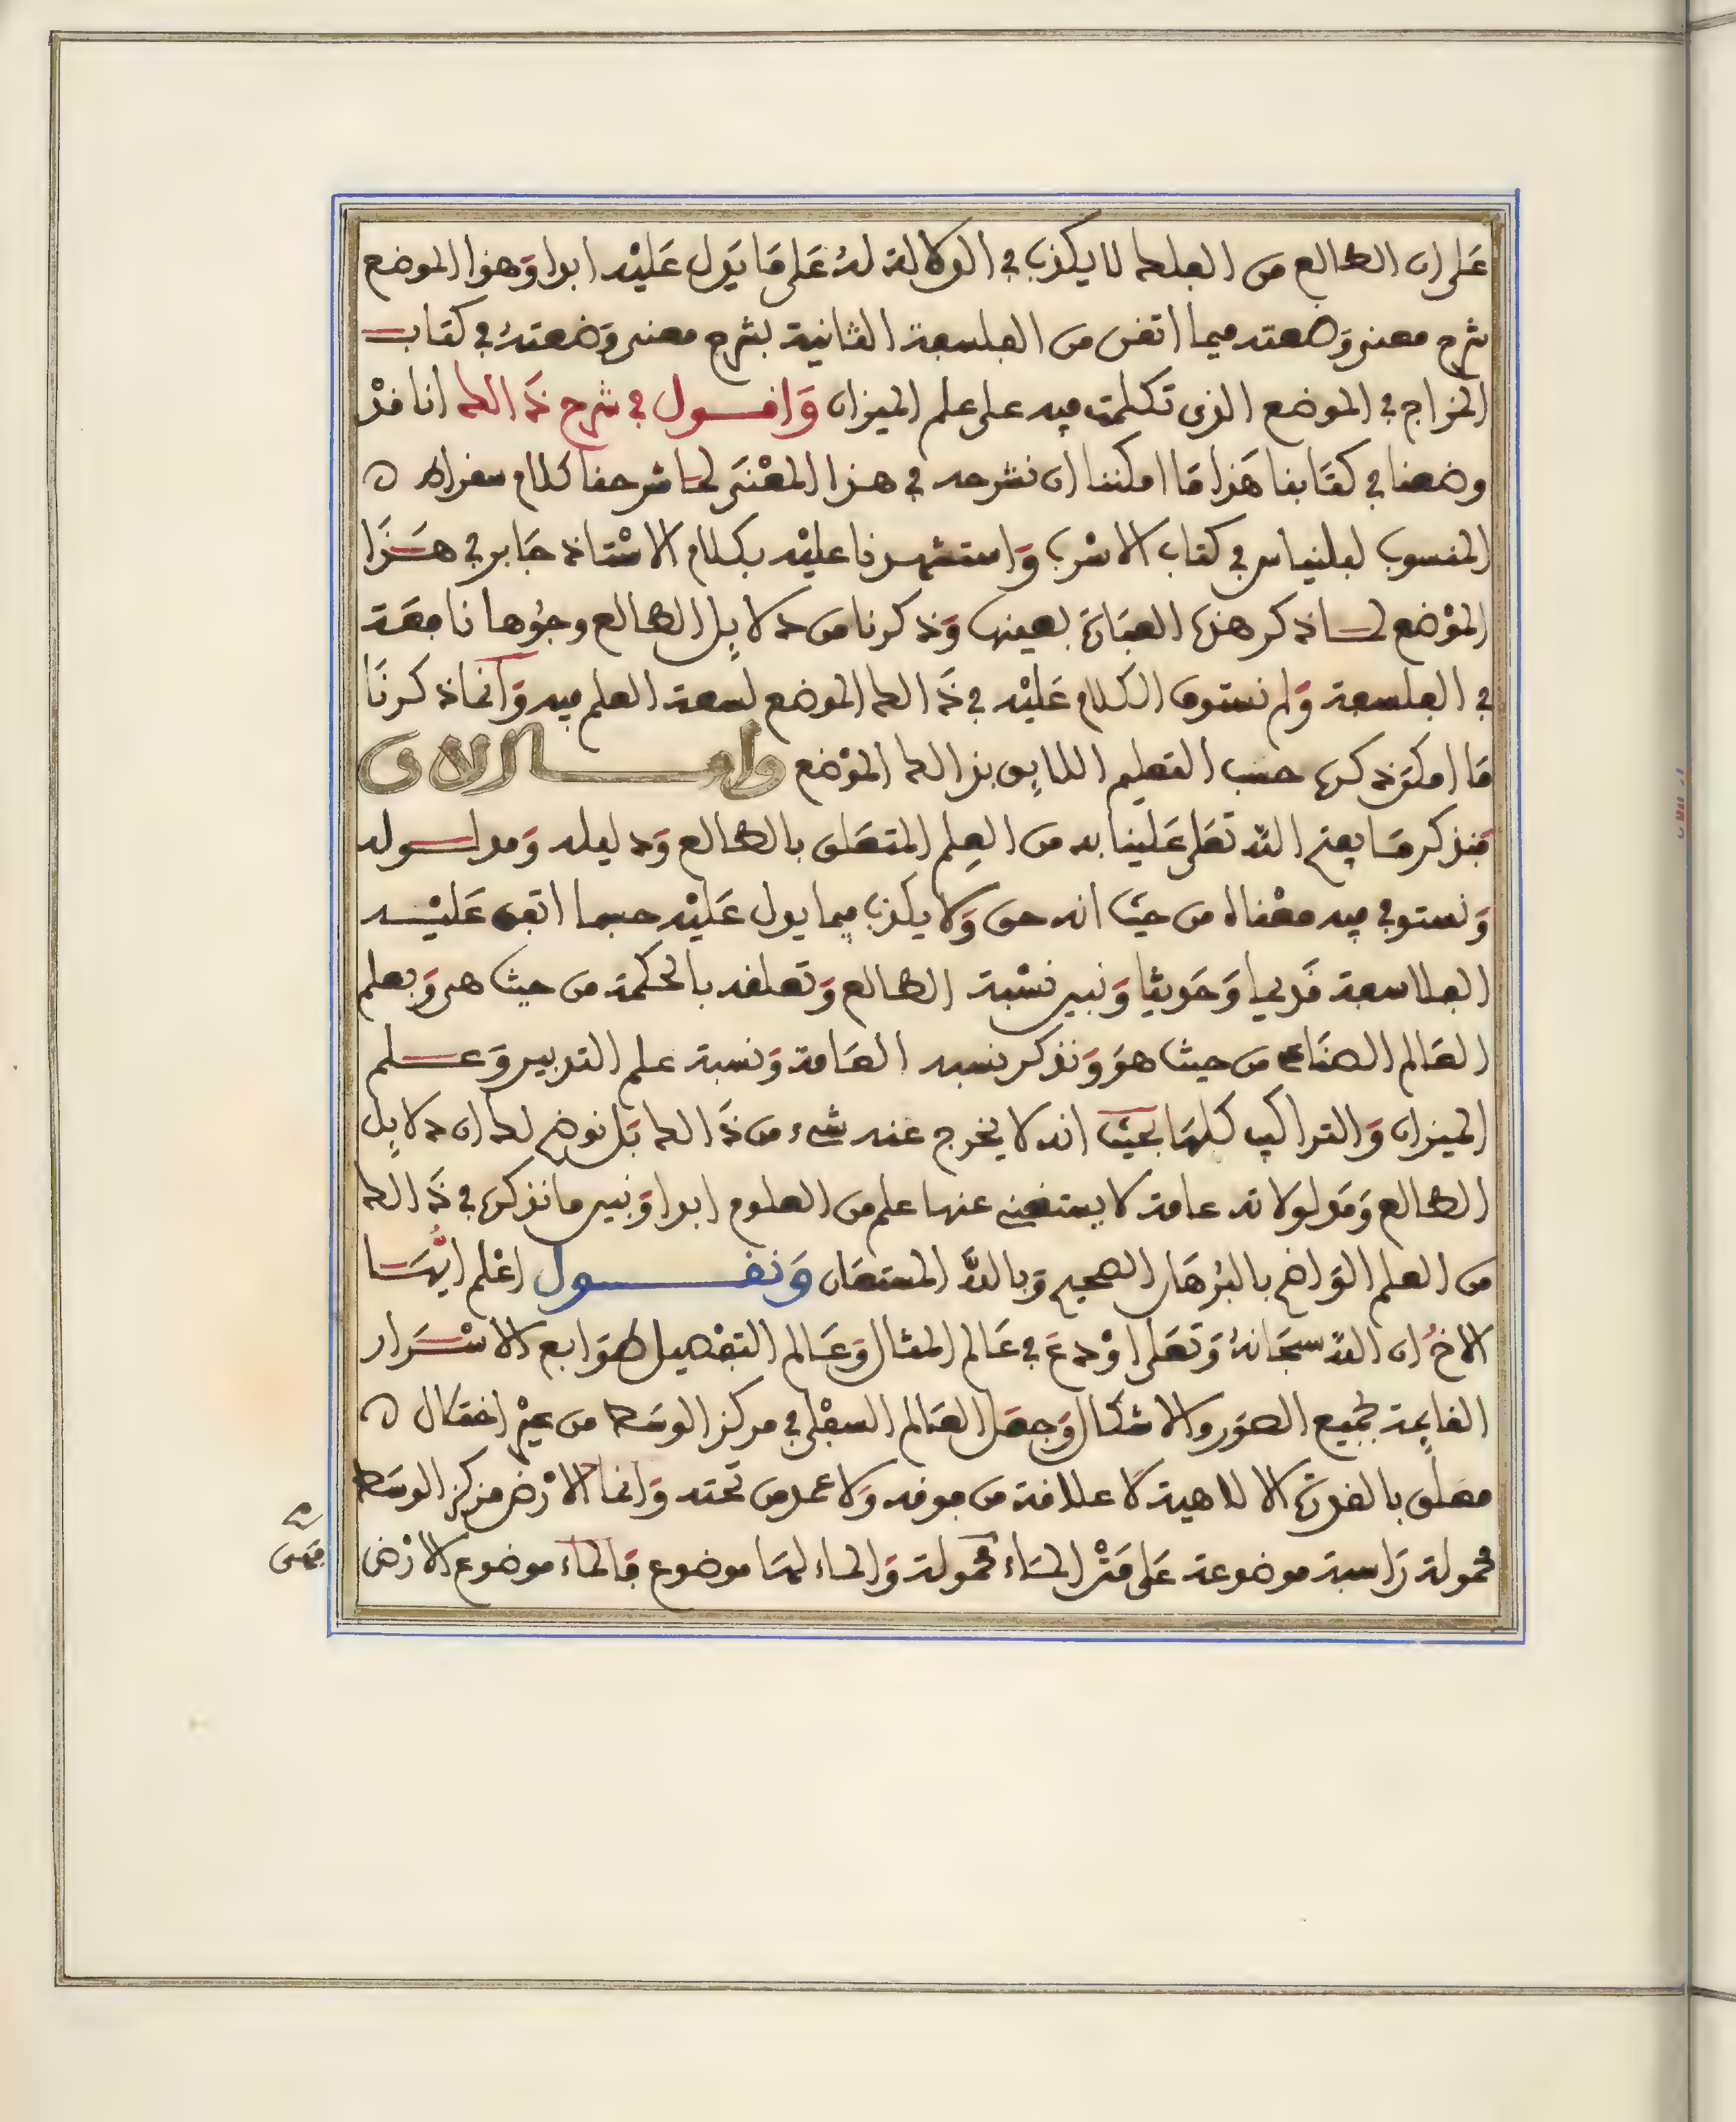 على ان الطالع من الفلك لا يكذب في الدلالة له على ما يدل عليه ابدا وهذا الموضع
شرح معنى وضعته فيما اتفق من الفلسفة الثانية بشرح معنى وضعته في كتاب
المزاج في الموضع الذي تكلمت فيه على علم الميزان واقول في شرح ذالك انا قد
وضعنا في كتابنا هذا ما امكننا ان نشرحه في هذا المعنى لما شرحنا كلام سقراط
المنسوب لبلنياس في كتاب الاسرب واستشهدنا عليه بكلام الاستاذ جابر في هذا
الموضع لما ذكر هذه العبارة بعينها وذكرنا من دلايل الطالع وجوها نافعة
في الفلسفة ولم نستوف الكلام عليه في ذالك الموضع لسعة العلم فيه وانما ذكرنا
ما امكن ذكره حسب التعليم اللايق بذالك الموضع واما الان
فنذكر ما يفتح الله تعلى علينا به من العلم المتعلق بالطالع ودليله ومدلوله
ونستوفي فيه معناه من حيث انه حق ولا يكذب فيما يدل عليه حسبما اتفق عليه
الفلاسفة قديما وحديثا ونبين نسبة الطالع وتعلقه بالحكمة من حيث هي وبعلم
العالم الصناعي من حيث هو ونذكر نسبه العامة ونسبة علم التدبير وعلم
الميزان والتراكيب كلها بحيث انه لا يخرج عنه شيء من ذالك بل نوضح لك ان دلايل
الطالع ومدلولاته عامة لا يستغني عنها علم من العلوم ابدا ونبين ما نذكره في ذالك
من العلم الواضح بالبرهان الصحيح وبالله المستعان ونقول اعلم ايها
الاخ ان الله سبحانه وتعلى اودع في عالم المثال وعالم التفصيل طوابع الاسرار
القايمة بجميع الصور والاشكال وجعل العالم السفلي في مركز الوسط من غير اختلال
معلق بالقدرة الالاهية لا علاقة من فوقه ولا عمد من تحته وانما الارض مركز الوسط
محمولة راسبة موضوعة على متن الماء محمولة والماء لها موضوع فالماء موضوع الارض